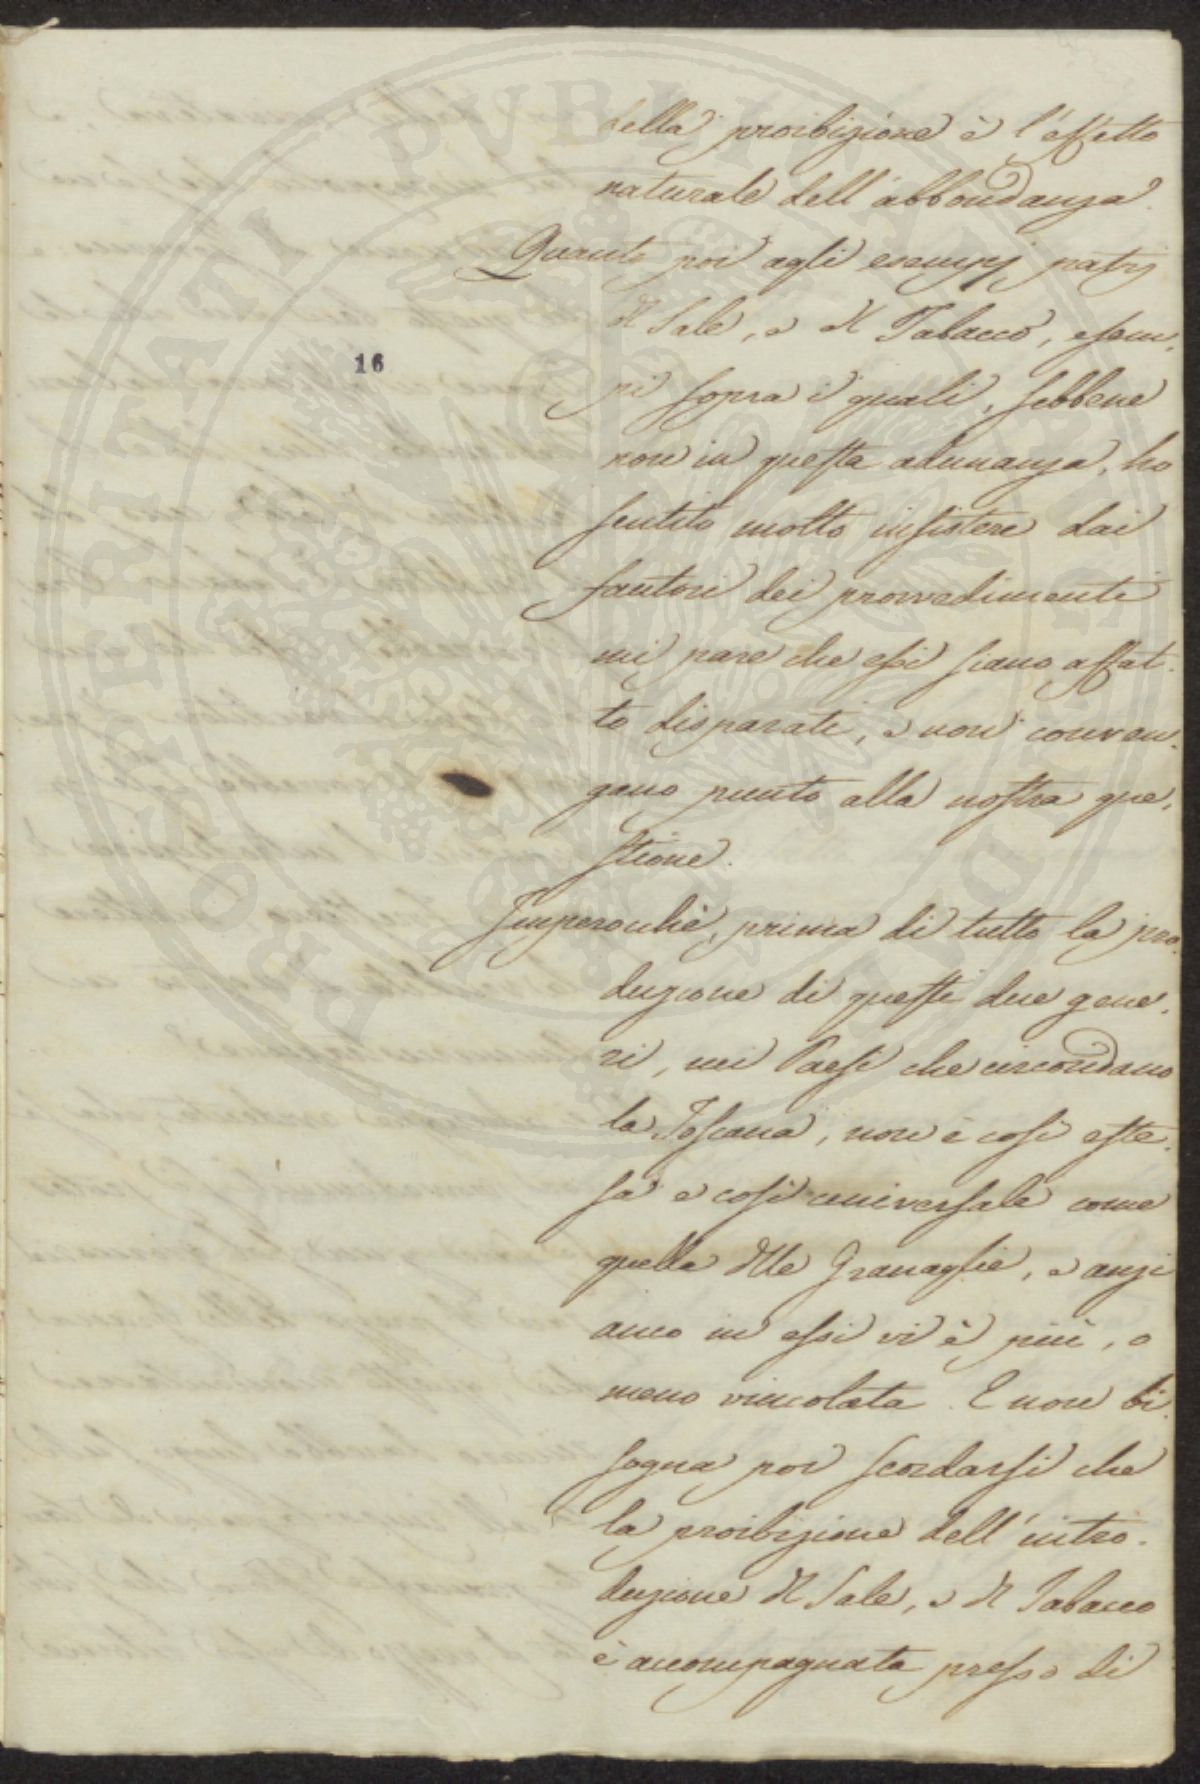 della proibizione è l'effetto
naturale dell'abbondanza.
Quanto poi agli esempj patrj
del Sale, e del Tabacco, esem-
pi sopra i quali, sebbene
non in questa adunanza, ho
sentito molto insistere dai
fautori dei provvedimenti
mi pare che essi siano affat-
to disparati, e non conven-
gano punto alla nostra que-
stione.
16
Imperocchè, prima di tutto la pro-
duzione di questi due gene-
ri, nei Paesi che circondano
la Toscana, non è così este-
sa e così universale come
quella delle Granaglie, e anzi
anco in essi vi è più, o
meno vincolata. E non bi-
sogna poi scordarsi che
la proibizione dell'intro-
duzione del Sale, e del Tabacco
è accompagnata presso di
PROSPERITATI PVBLICAE